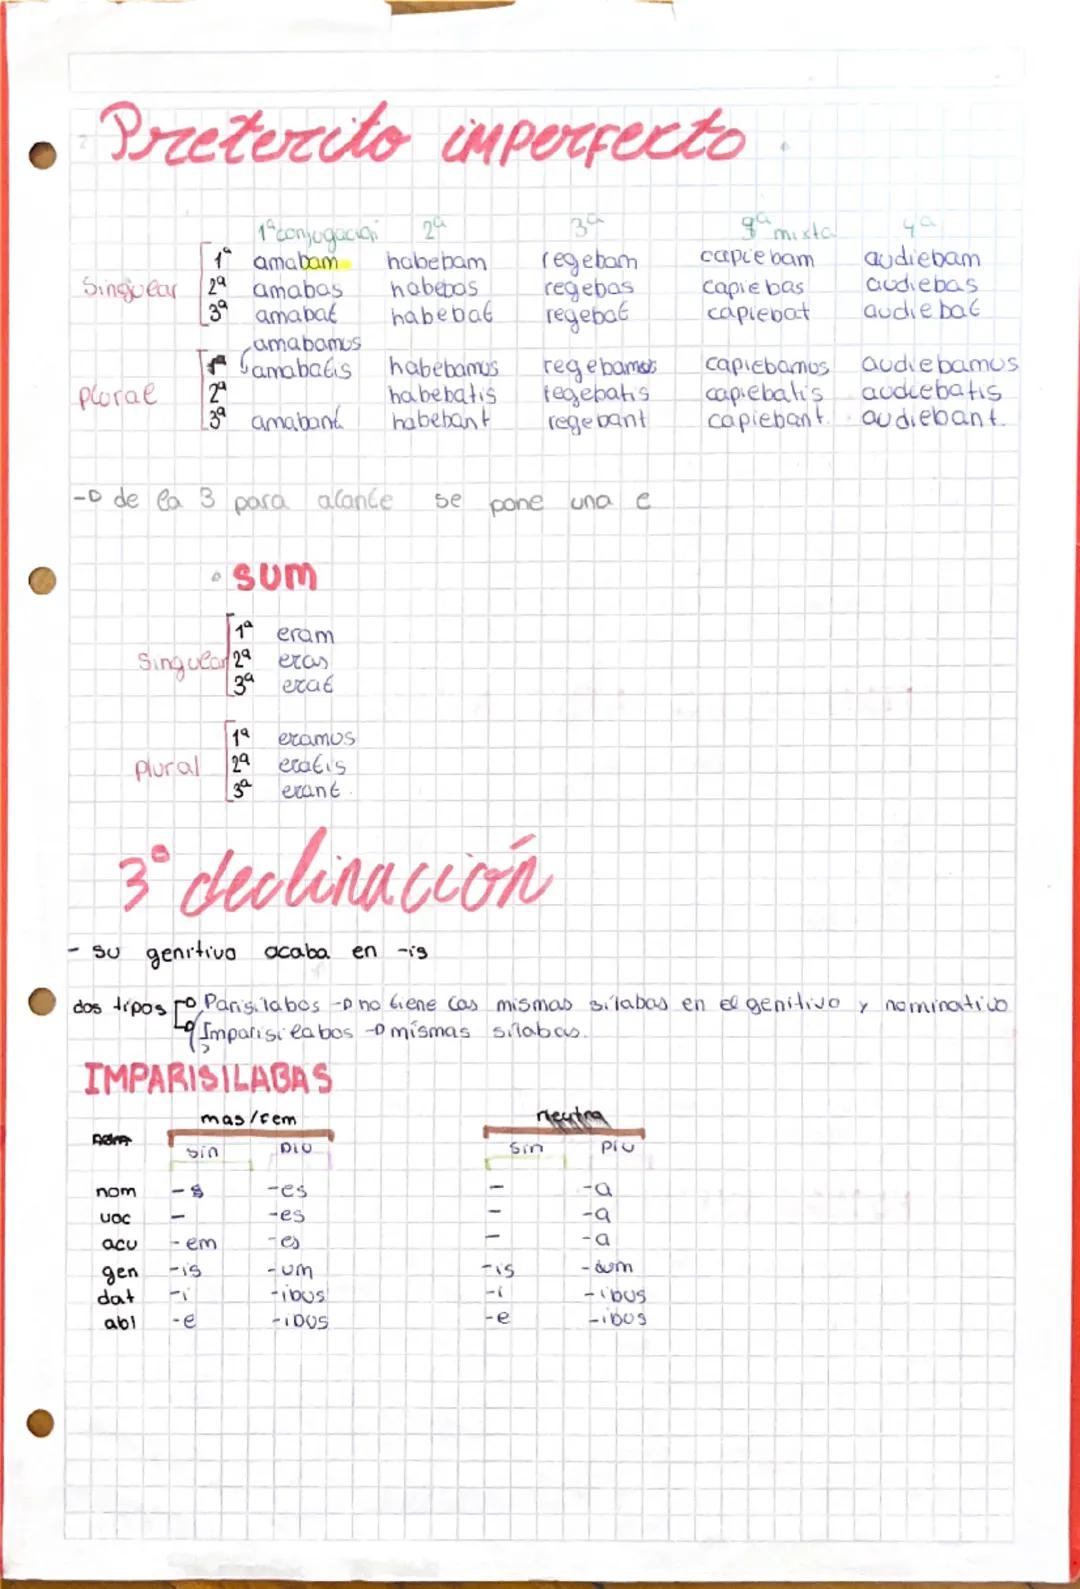 Preterito imperfecto
1ª conjugación 2ª 3ª 3ª mixta 4ª
Singular
1ª amabam habebam regebam capiebam audiebam
2ª amabas habebas regebas capiebas audiebas
3ª amabat habebat regebat capiebat audiebat
amabamus
plural
1ª amabatis habebamus regebamus capiebamus audiebamus
2ª habebatis regebatis capiebatis audiebatis
3ª amabant habebant regebant capiebant audiebant
de la 3 para alante se pone una e
sum
Singular
1ª eram
2ª eras
3ª erat
plural
1ª eramus
2ª eratis
3ª erant
3º declinación
- su genitivo acaba en -is
dos tipos
Parisílabos no tiene las mismas sílabas en el genitivo y nominativo
Imparisílabos mismas sílabas.
IMPARISILABAS
mas/fem neutra
sin plu sin plu
nom -s -es - -a
voc - -es - -a
acu -em -es - -a
gen -is -um -is -um
dat -i -ibus -i -ibus
abl -e -ibus -e -ibus